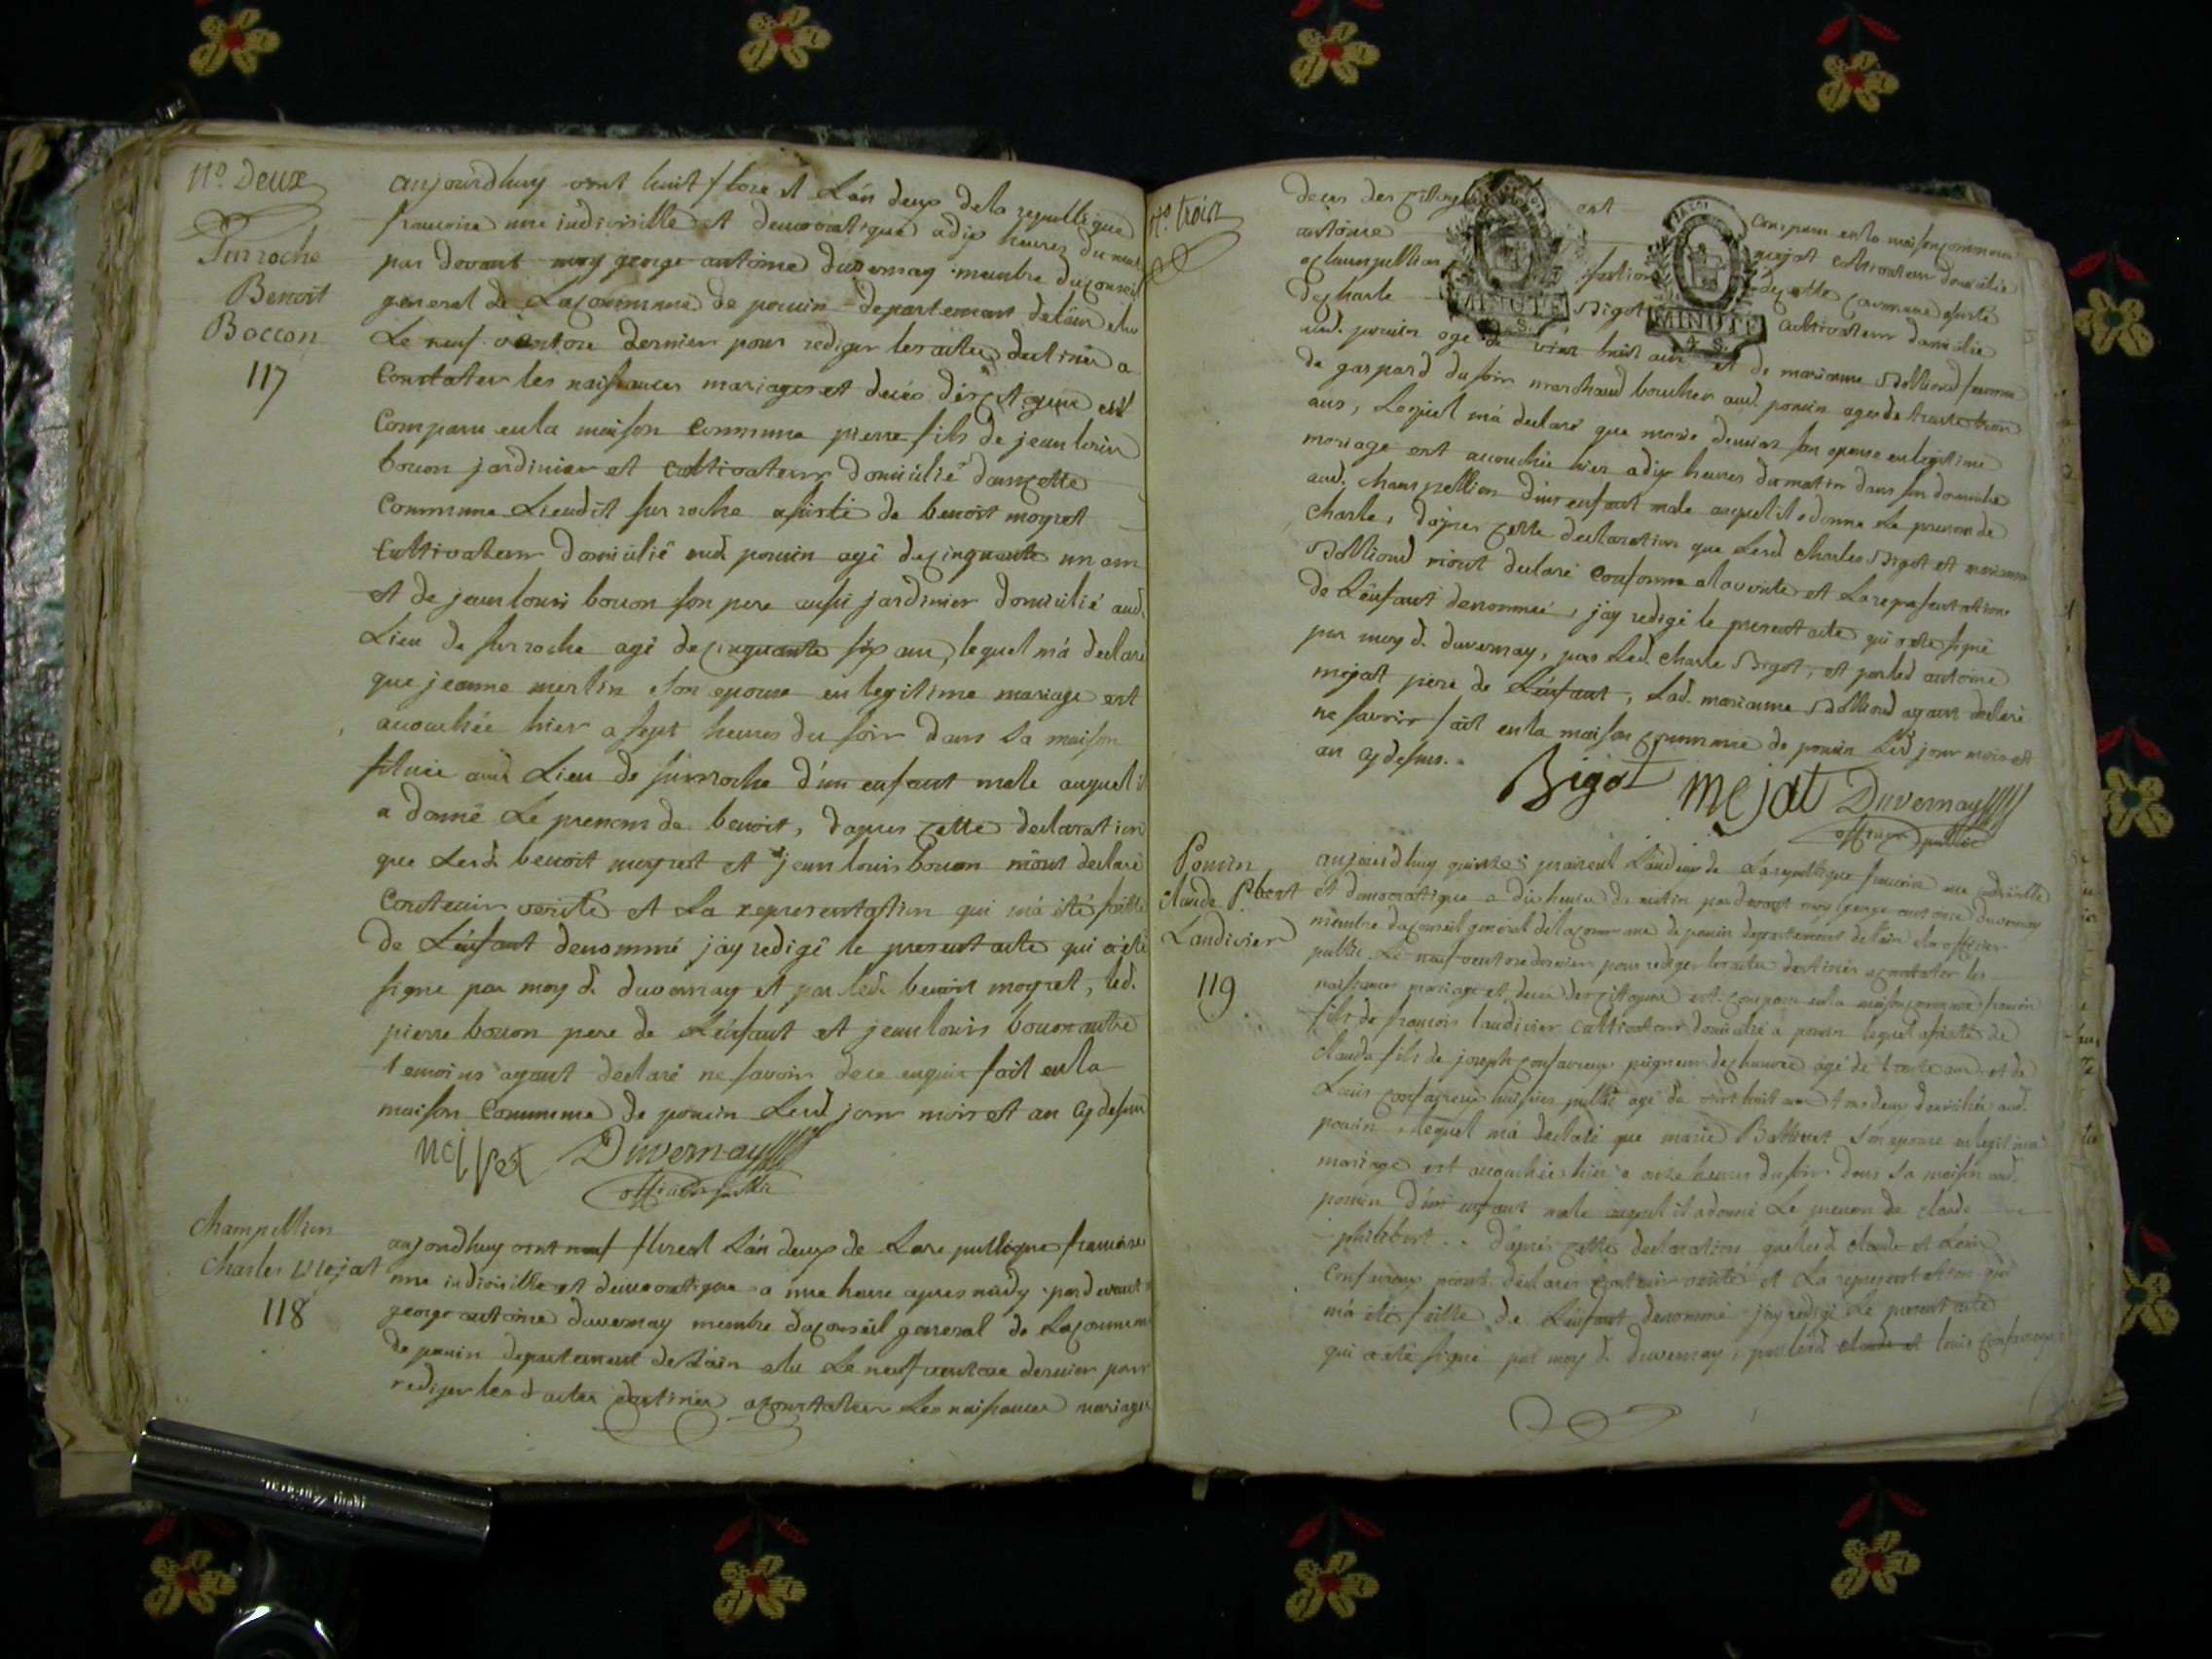 N.º Deux
Surroche
Benoit
Boccon
117
aujourdhuy vint huit floreal Lán deux dela republique
francoise une indivisible et democratique adix heures du matin
par devant moy george antoine duvernay membre duconseil
general de Lacommune de poncin departement delain elu
Le neuf ventose dernier pour rediger les actes destinés a
Constater les naissances mariages et decés des citoyens est
Comparu enla maison commune pierre fils de jean louis
bocon jardinier et cultivateur domicilié danscette
Commune Lieudit surroche assisté de benoit moyret
Cultivateur domicilié aud. poncin agé decinquante un ans
et de jean louis bocon son pere aussi jardinier domicilié aud.
Lieu de surroche agé decinquante six ans, lequel má declaré
que jeanne merlin son epouse en legitime mariage est
accouchée hier a sept heures du soir dans sa maison
située aud. Lieu de surroche d'un enfant male auquel il
a donné Le prenom de benoit, dapres cette declaration
que Lesd. benoit moyret et jean louis bocon mónt declaré
Contenir verité et La representation qui má été faitte
de Lénfant denommé jáy redigé le present acte qui a été
signe par moy d. duvernay et par led. benoit moyret, led.
pierre bocon pere de Lénfant et jean louis bocon autre
temoins ayant declaré ne savoir dece enquis fait enla
maison Commune de poncin Lesd jour mois et an cy dessus
moyret Duvernay
officier public
Champellion
Charles Mejat
118
aujourdhuy vint neuf floreal Lán deux de Lare publique francoise
une indivisible et democratique a une heure apres midy pardevant
george antoine duvernay membre duconseil general de Lacommune
de poncin departement deLáin elu Le neuf ventose dernier pour
rediger les d actes destinés aconstater Les naissances mariages
N.º trois
deces des citoyens est Comparu enla maison commune
antoine mejat cultivateur domicilié
a champellion section decette commune assisté
de charle Bigot cultivateur domicilié
aud. poncin agé de vint huit ans et de marianne Bolliond femme
de gaspard dufoir marchand boucher aud. poncin agée de trante trois
ans, Lequel má declaré que marie son epouse en legitime
mariage est accouchée hier adix heures dumatin dans son domicile
aud. champellion d'un enfant male auquel il a donné Le prenom de
Charle, dápres cette declaration que Lesd. Charles Bigot et marianne
Bolliond mónt declaré conforme alaverité et Larepresentation
de Lénfant denommé, jay redigé le present acte qui a ete signé
par moy d. duvernay, par Led. Charle Bigot, et par led antoine
mejat pere de Lénfant, Lad. marianne Bolliond ayant declaré
ne savoir fait enla maison commune de poncin Lesd jour mois et
an cy dessus.
Bigot mejat Duvernay
officier public
MINUTE
4 S.
MINUTE
4 S.
Poncin
claude P.bert
Landivier
119
aujourdhuy quinze prairial Lándeux de Larepublique francoise une indivisible
et democratique a dix heures du matin pardevant moy george antoine duvernay
membre duconseil general delacommune de poncin departement delain elu officier
public Le neuf ventose dernier pour rediger les actes destinés aconstater les
naissances mariages et deces descitoyens est comparu enla maison commune francois
fils de francois landivier cultivateur domicilié a poncin lequel assisté de
claude fils de joseph confavreux peigneur dechanvre agé de trente ans et de
Louis confavreux huissier public agé de vint huit ans tous deux domiciliés aud.
poncin, lequel má declaré que marie son epouse en legitime
mariage est accouchée hier a onze heures dusoir dans sa maison aud.
poncin, d'un enfant male auquel il adonné Le prenom de claude
philibert. dápres cette declaration que Lesd. claude et Louis
Confavreux mont declarés contenir verité et La representation qui
má été faitte de Lénfant denommé jáy redigé Le present acte
qui a eté signé par moy d. duvernay, par lesd. claude et louis confavreux